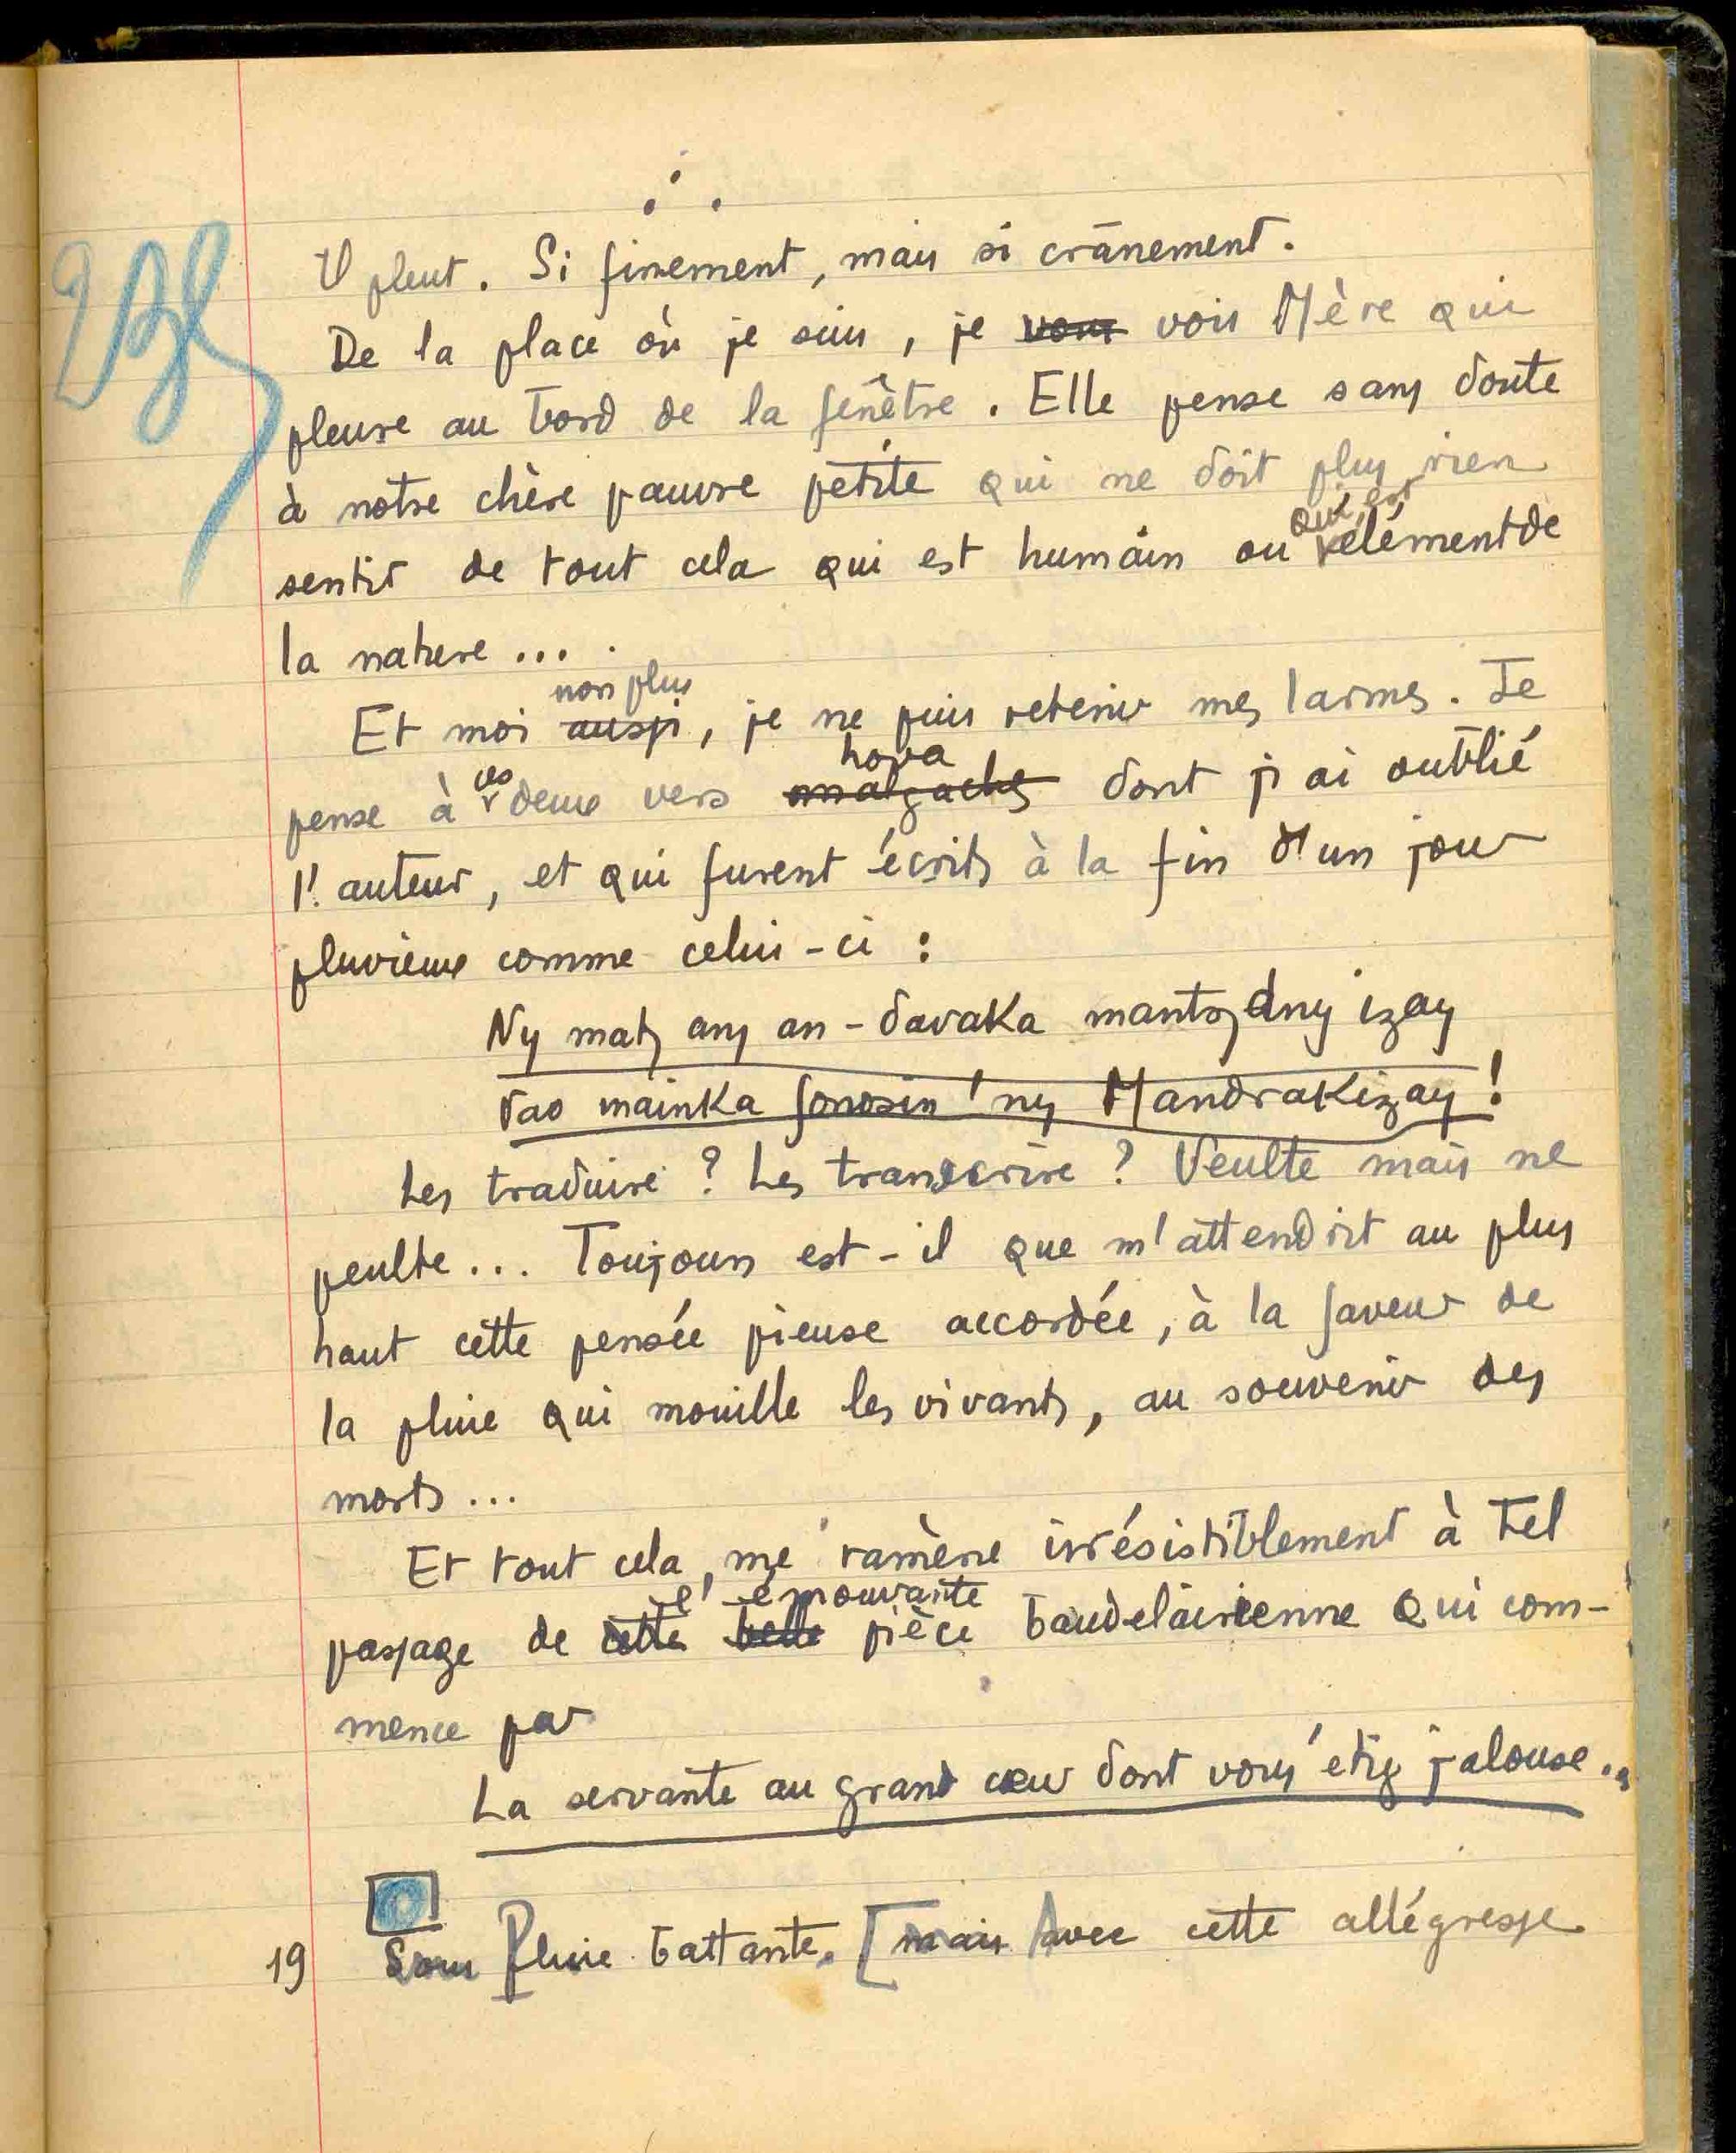 Il pleut. Si finement, mais si crânement.
De la place où je suis, je vois Mère qui
pleure au bord de la fenêtre. Elle pense sans doute
à notre chère pauvre petite qui ne doit plus rien
qui est
sentir de tout cela qui est humain ou élément de
la nature ....
non plus
Et moi aussi, je ne puis retenir mes larmes. Je
hova
pense à ces deux vers malgaches dont j'ai oublié
l'auteur, et qui furent écrits à la fin d'un jour
pluvieux comme celui-ci :
Ny maty any an-davaka mantsy dny izay
vao mainka fonosin'ny Mandrakizay !
Les traduire ? Les transcrire ? Veulte mais ne
peulte... Toujours est-il que m'attendrit au plus
haut cette pensée pieuse accordée, à la faveur de
la pluie qui mouille les vivants, au souvenir des
morts ...
Et tout cela, me ramène irrésistiblement à tel
l'émouvante
passage de cette belle pièce baudelairienne qui com-
mence par
La servante au grand cœur dont vous étiez jalouse..
19 Sous Pluie battante. [mais Avec cette allégresse